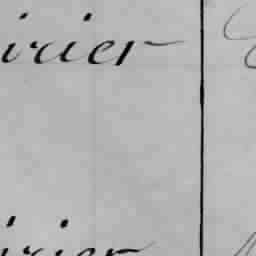 irier
irier